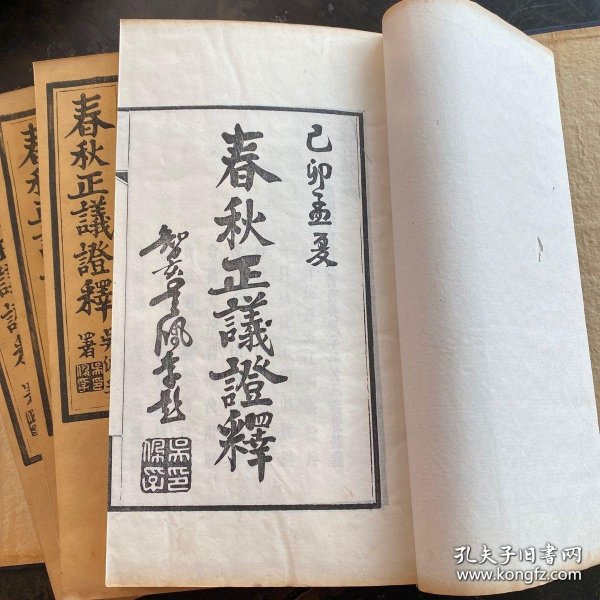 己卯孟夏
春秋正議證釋
吳佩孚題
春秋正議證釋
署
春秋正
孔夫子旧书网
www.kongfz.com